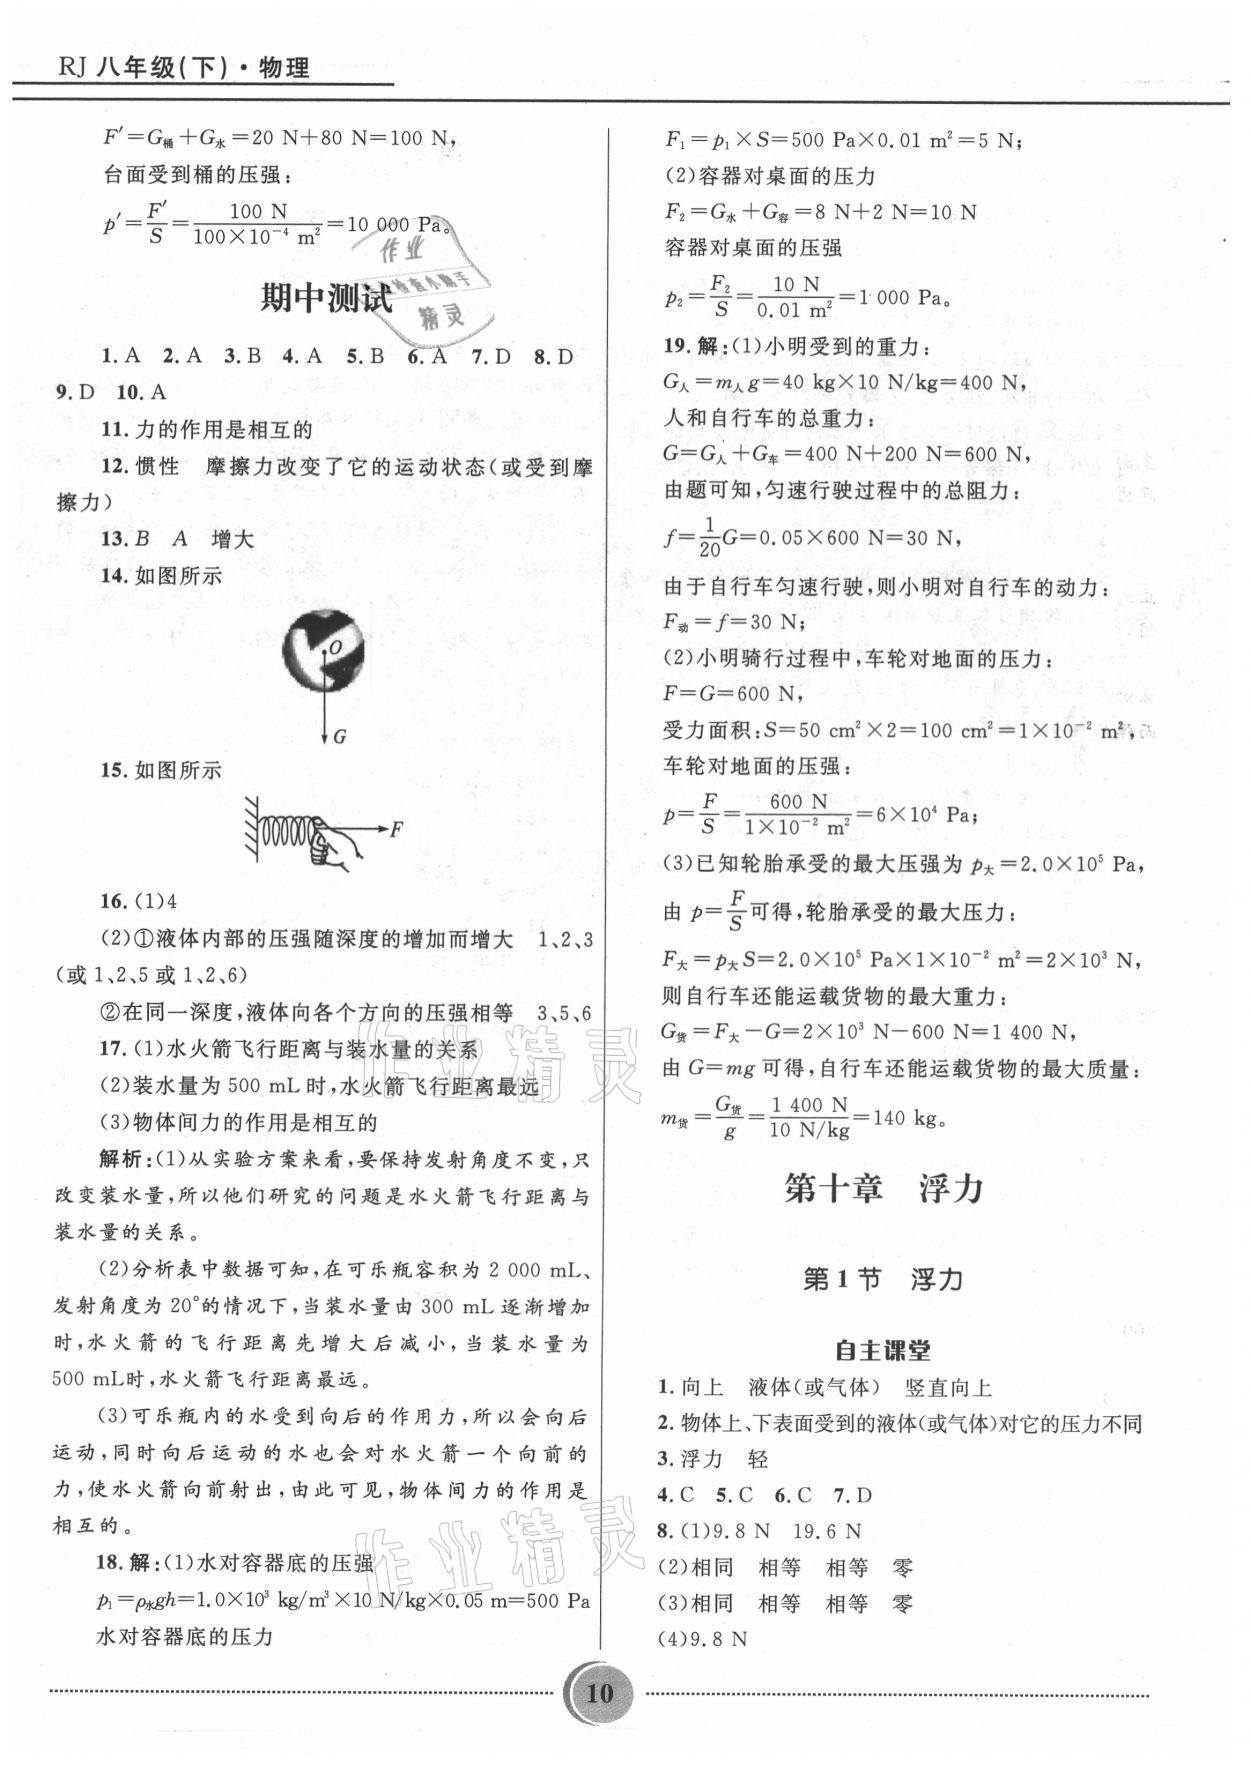 RJ 八年级(下)·物理
F′=G桶+G水=20 N+80 N=100 N,
台面受到桶的压强:
p′=F′/S=100 N/(100×10⁻⁴ m²)=10 000 Pa。
期中测试
1. A 2. A 3. B 4. A 5. B 6. A 7. D 8. D
9. D 10. A
11. 力的作用是相互的
12. 惯性 摩擦力改变了它的运动状态(或受到摩
擦力)
13. B A 增大
14. 如图所示
O
G
15. 如图所示
F
16. (1)4
(2)①液体内部的压强随深度的增加而增大 1、2、3
(或1、2、5或1、2、6)
②在同一深度,液体向各个方向的压强相等 3、5、6
17. (1)水火箭飞行距离与装水量的关系
(2)装水量为 500 mL 时,水火箭飞行距离最远
(3)物体间力的作用是相互的
解析:(1)从实验方案来看,要保持发射角度不变,只
改变装水量,所以他们研究的问题是水火箭飞行距离与
装水量的关系。
(2)分析表中数据可知,在可乐瓶容积为 2 000 mL、
发射角度为 20°的情况下,当装水量由 300 mL 逐渐增加
时,水火箭的飞行距离先增大后减小,当装水量为
500 mL时,水火箭飞行距离最远。
(3)可乐瓶内的水受到向后的作用力,所以会向后
运动,同时向后运动的水也会对水火箭一个向前的
力,使水火箭向前射出,由此可见,物体间力的作用是
相互的。
18. 解:(1)水对容器底的压强
p₁=ρ水gh=1.0×10³ kg/m³×10 N/kg×0.05 m=500 Pa
水对容器底的压力
F₁=p₁×S=500 Pa×0.01 m²=5 N;
(2)容器对桌面的压力
F₂=G水+G容=8 N+2 N=10 N
容器对桌面的压强
p₂=F₂/S=10 N/0.01 m²=1 000 Pa。
19. 解:(1)小明受到的重力:
G人=m人g=40 kg×10 N/kg=400 N,
人和自行车的总重力:
G=G人+G车=400 N+200 N=600 N,
由题可知,匀速行驶过程中的总阻力:
f=1/20G=0.05×600 N=30 N,
由于自行车匀速行驶,则小明对自行车的动力:
F动=f=30 N;
(2)小明骑行过程中,车轮对地面的压力:
F=G=600 N,
受力面积:S=50 cm²×2=100 cm²=1×10⁻² m²,
车轮对地面的压强:
p=F/S=600 N/(1×10⁻² m²)=6×10⁴ Pa;
(3)已知轮胎承受的最大压强为 p大=2.0×10⁵ Pa,
由 p=F/S可得,轮胎承受的最大压力:
F大=p大S=2.0×10⁵ Pa×1×10⁻² m²=2×10³ N,
则自行车还能运载货物的最大重力:
G货=F大-G=2×10³ N-600 N=1 400 N,
由 G=mg 可得,自行车还能运载货物的最大质量:
m货=G货/g=1 400 N/(10 N/kg)=140 kg。
第十章 浮力
第1节 浮力
自主课堂
1. 向上 液体(或气体) 竖直向上
2. 物体上、下表面受到的液体(或气体)对它的压力不同
3. 浮力 轻
4. C 5. C 6. C 7. D
8. (1)9.8 N 19.6 N
(2)相同 相等 相等 零
(3)相同 相等 相等 零
(4)9.8 N
10
作业
检查小助手
精灵
作业精灵
作业精灵